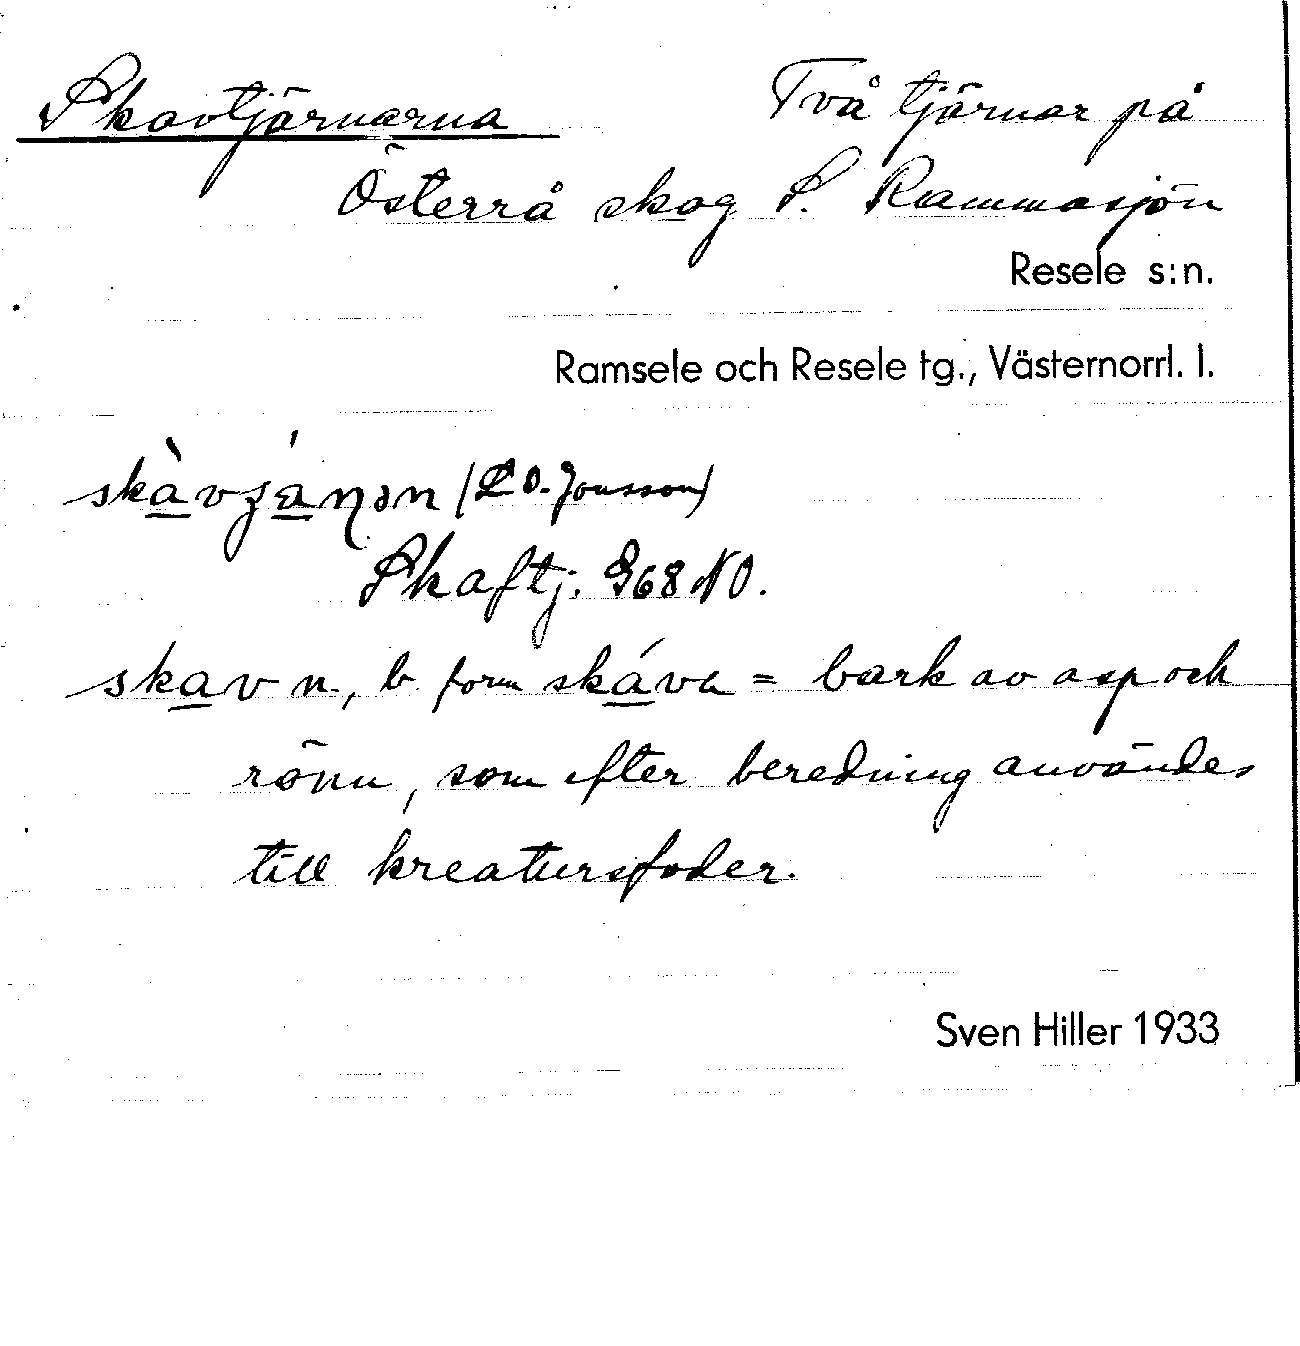 Skavtjärnarna Två tjärnar på
Österrå skog S. Rammasjön
Resele s:n.
Ramsele och Resele tg., Västernorrl. l.
(L O. Jonsson)
Skaftj. G68 NO.
skav n., b. form skáva = bark av asp och
rönn, som efter beredning användes
till kreatursfoder.
Sven Hiller 1933